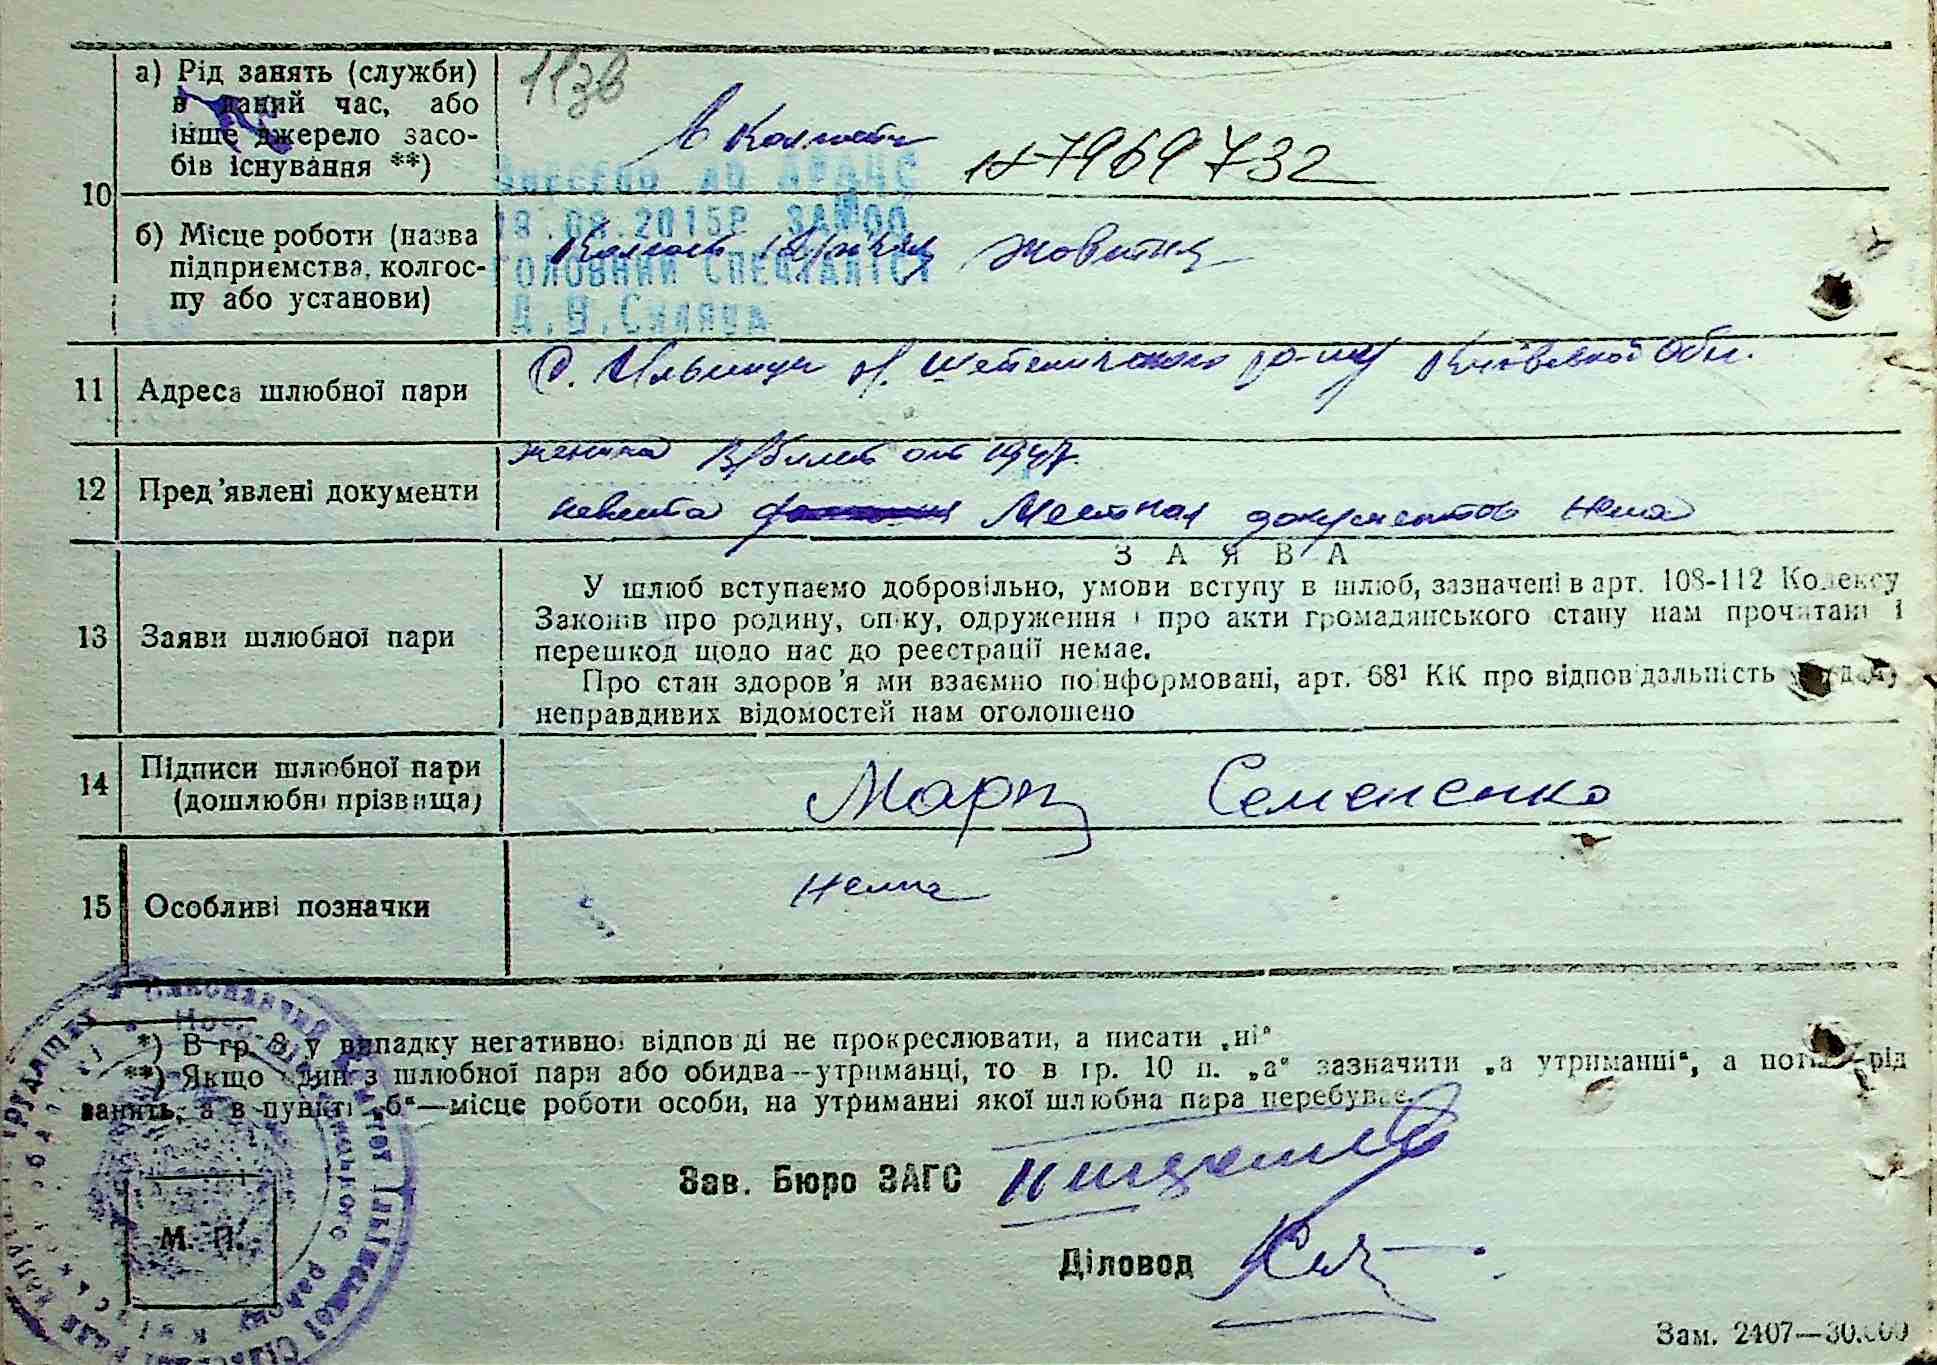 10
а) Рід занять (служби)
в даний час, або
інше джерело засо-
бів існування **)
113в
в колгоспі
н 7969732
Внесено до ДРАЦС
18.08.2015р. ЗАВОД
ГОЛОВНИЙ СПЕЦІАЛІСТ
б) Місце роботи (назва
підприємства, колгос-
пу або установи)
Колгосп Жовтня
11
Адреса шлюбної пари
С. Ильинцы Київської обл.
12
Пред'явлені документи
жениха В/билет от 1947.
невеста документов нема
13
Заяви шлюбної пари
ЗАЯВА
У шлюб вступаємо добровільно, умови вступу в шлюб, зазначені в арт. 108-112 Кодексу
Законів про родину, опіку, одруження і про акти громадянського стану нам прочитані і
перешкод щодо нас до реєстрації немає.
Про стан здоров'я ми взаємно поінформовані, арт. 68¹ КК про відповідальність
неправдивих відомостей нам оголошено
14
Підписи шлюбної пари
(дошлюбні прізвища)
Семененко
15
Особливі позначки
нема
*) В гр. 8, у випадку негативної відповіді не прокреслювати, а писати „ні“
**) Якщо один з шлюбної пари або обидва—утриманці, то в гр. 10 п. „а“ зазначити „а утриманні“, а потім рід
занять, а в пункті „б“—місце роботи особи, на утриманні якої шлюбна пара перебуває.
Зав. Бюро ЗАГС
М. П.
Діловод
Зам. 2407—30.000